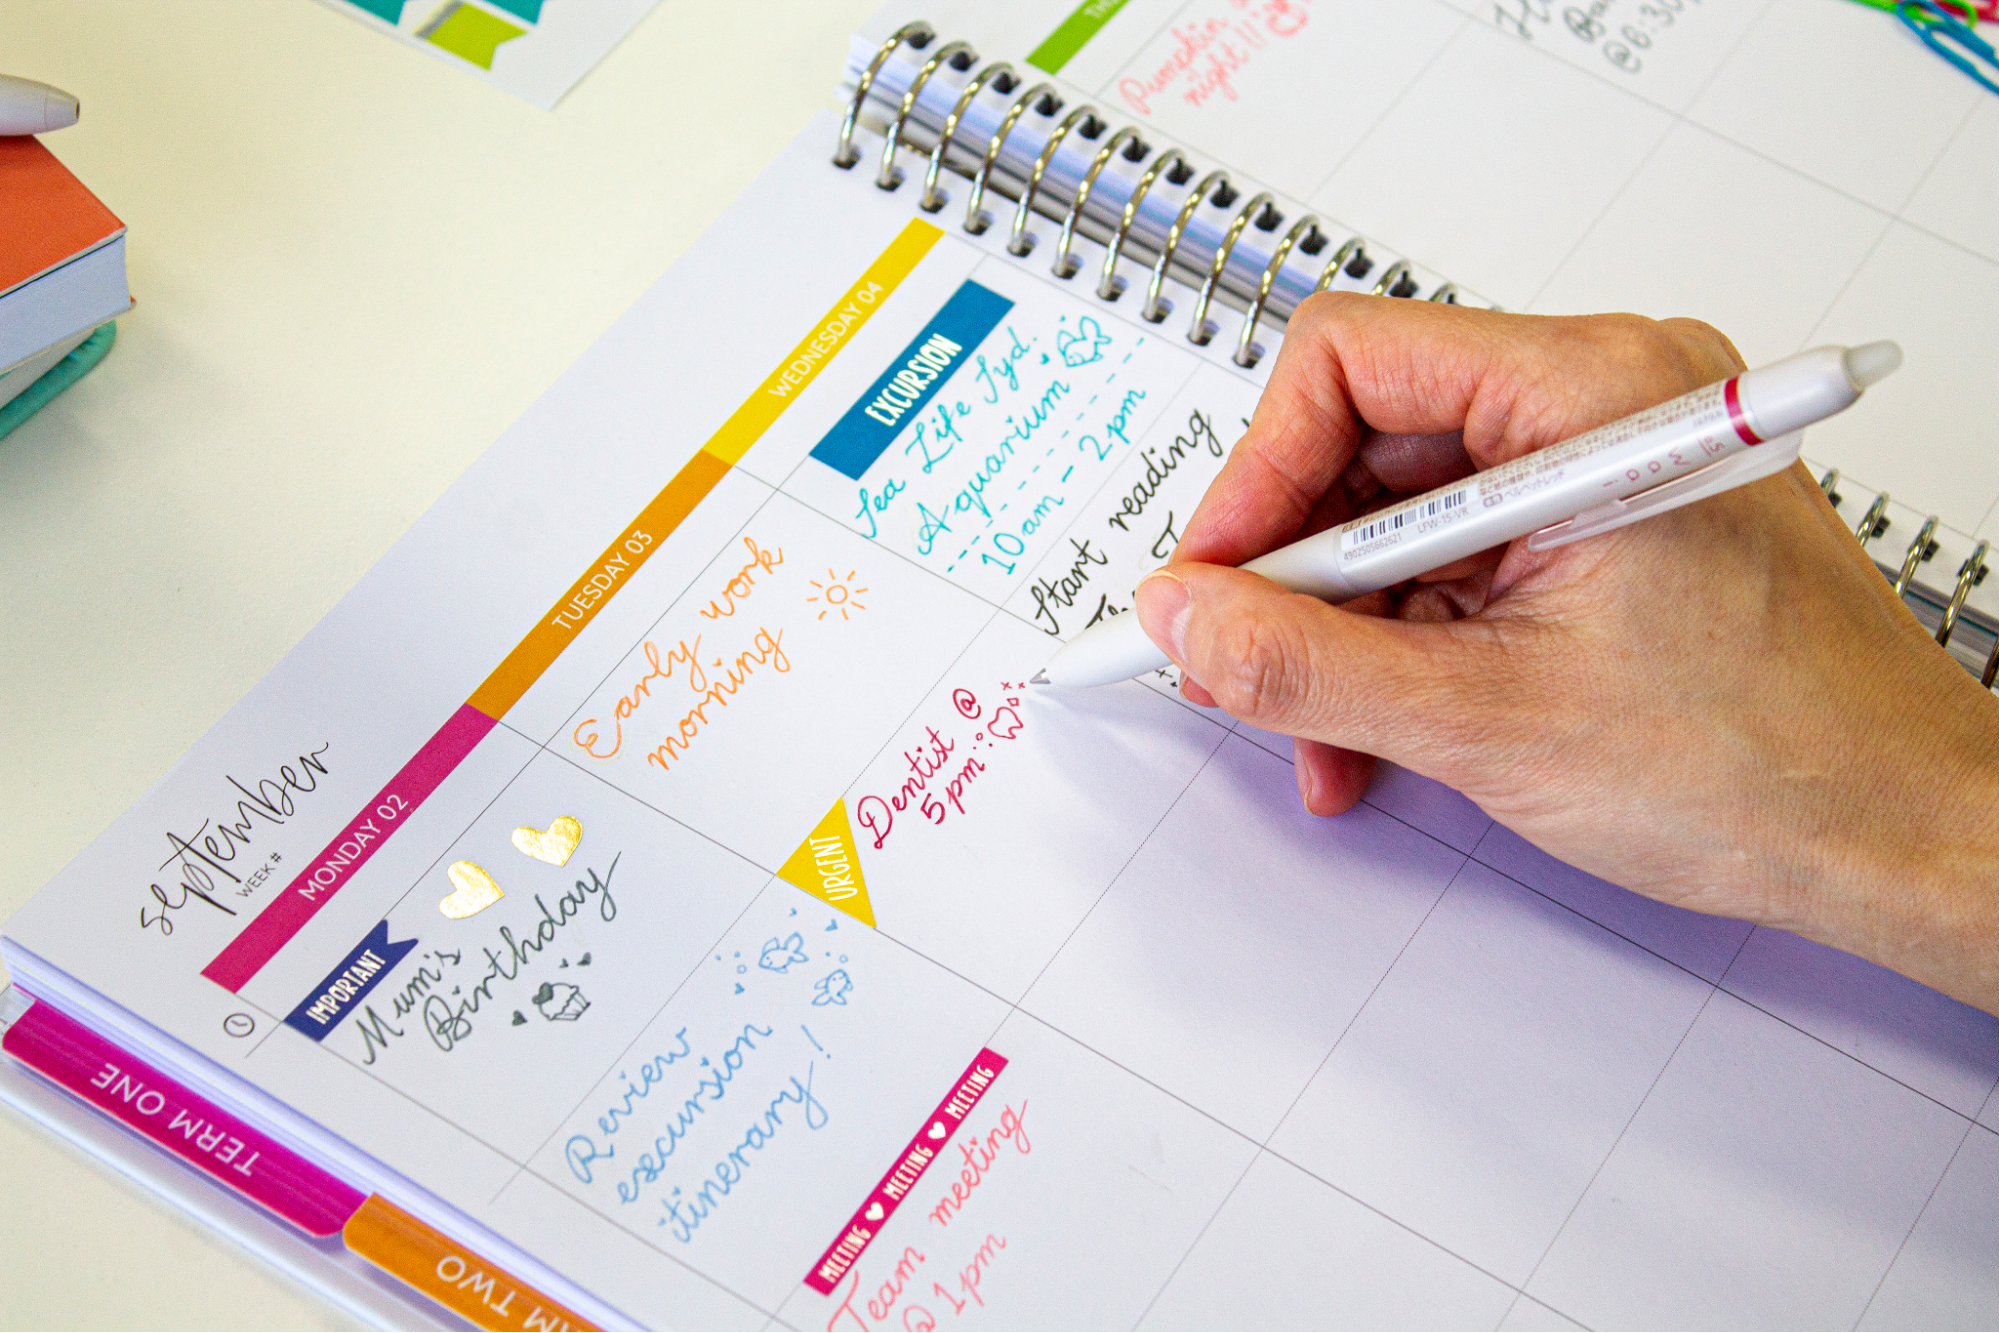 september
WEEK #
MONDAY 02
IMPORTANT
Mum's
Birthday
Review
excursion
itinerary!
MEETING MEETING MEETING
Team meeting
@ 1pm
TUESDAY 03
Early work
morning
URGENT
Dentist @
5pm
WEDNESDAY 04
EXCURSION
Sea Life Syd.
Aquarium
10am - 2pm
Start reading
Pumpkin
night!!
@6:30
TERM ONE
TWO
4902505662621
LFW-15-VR